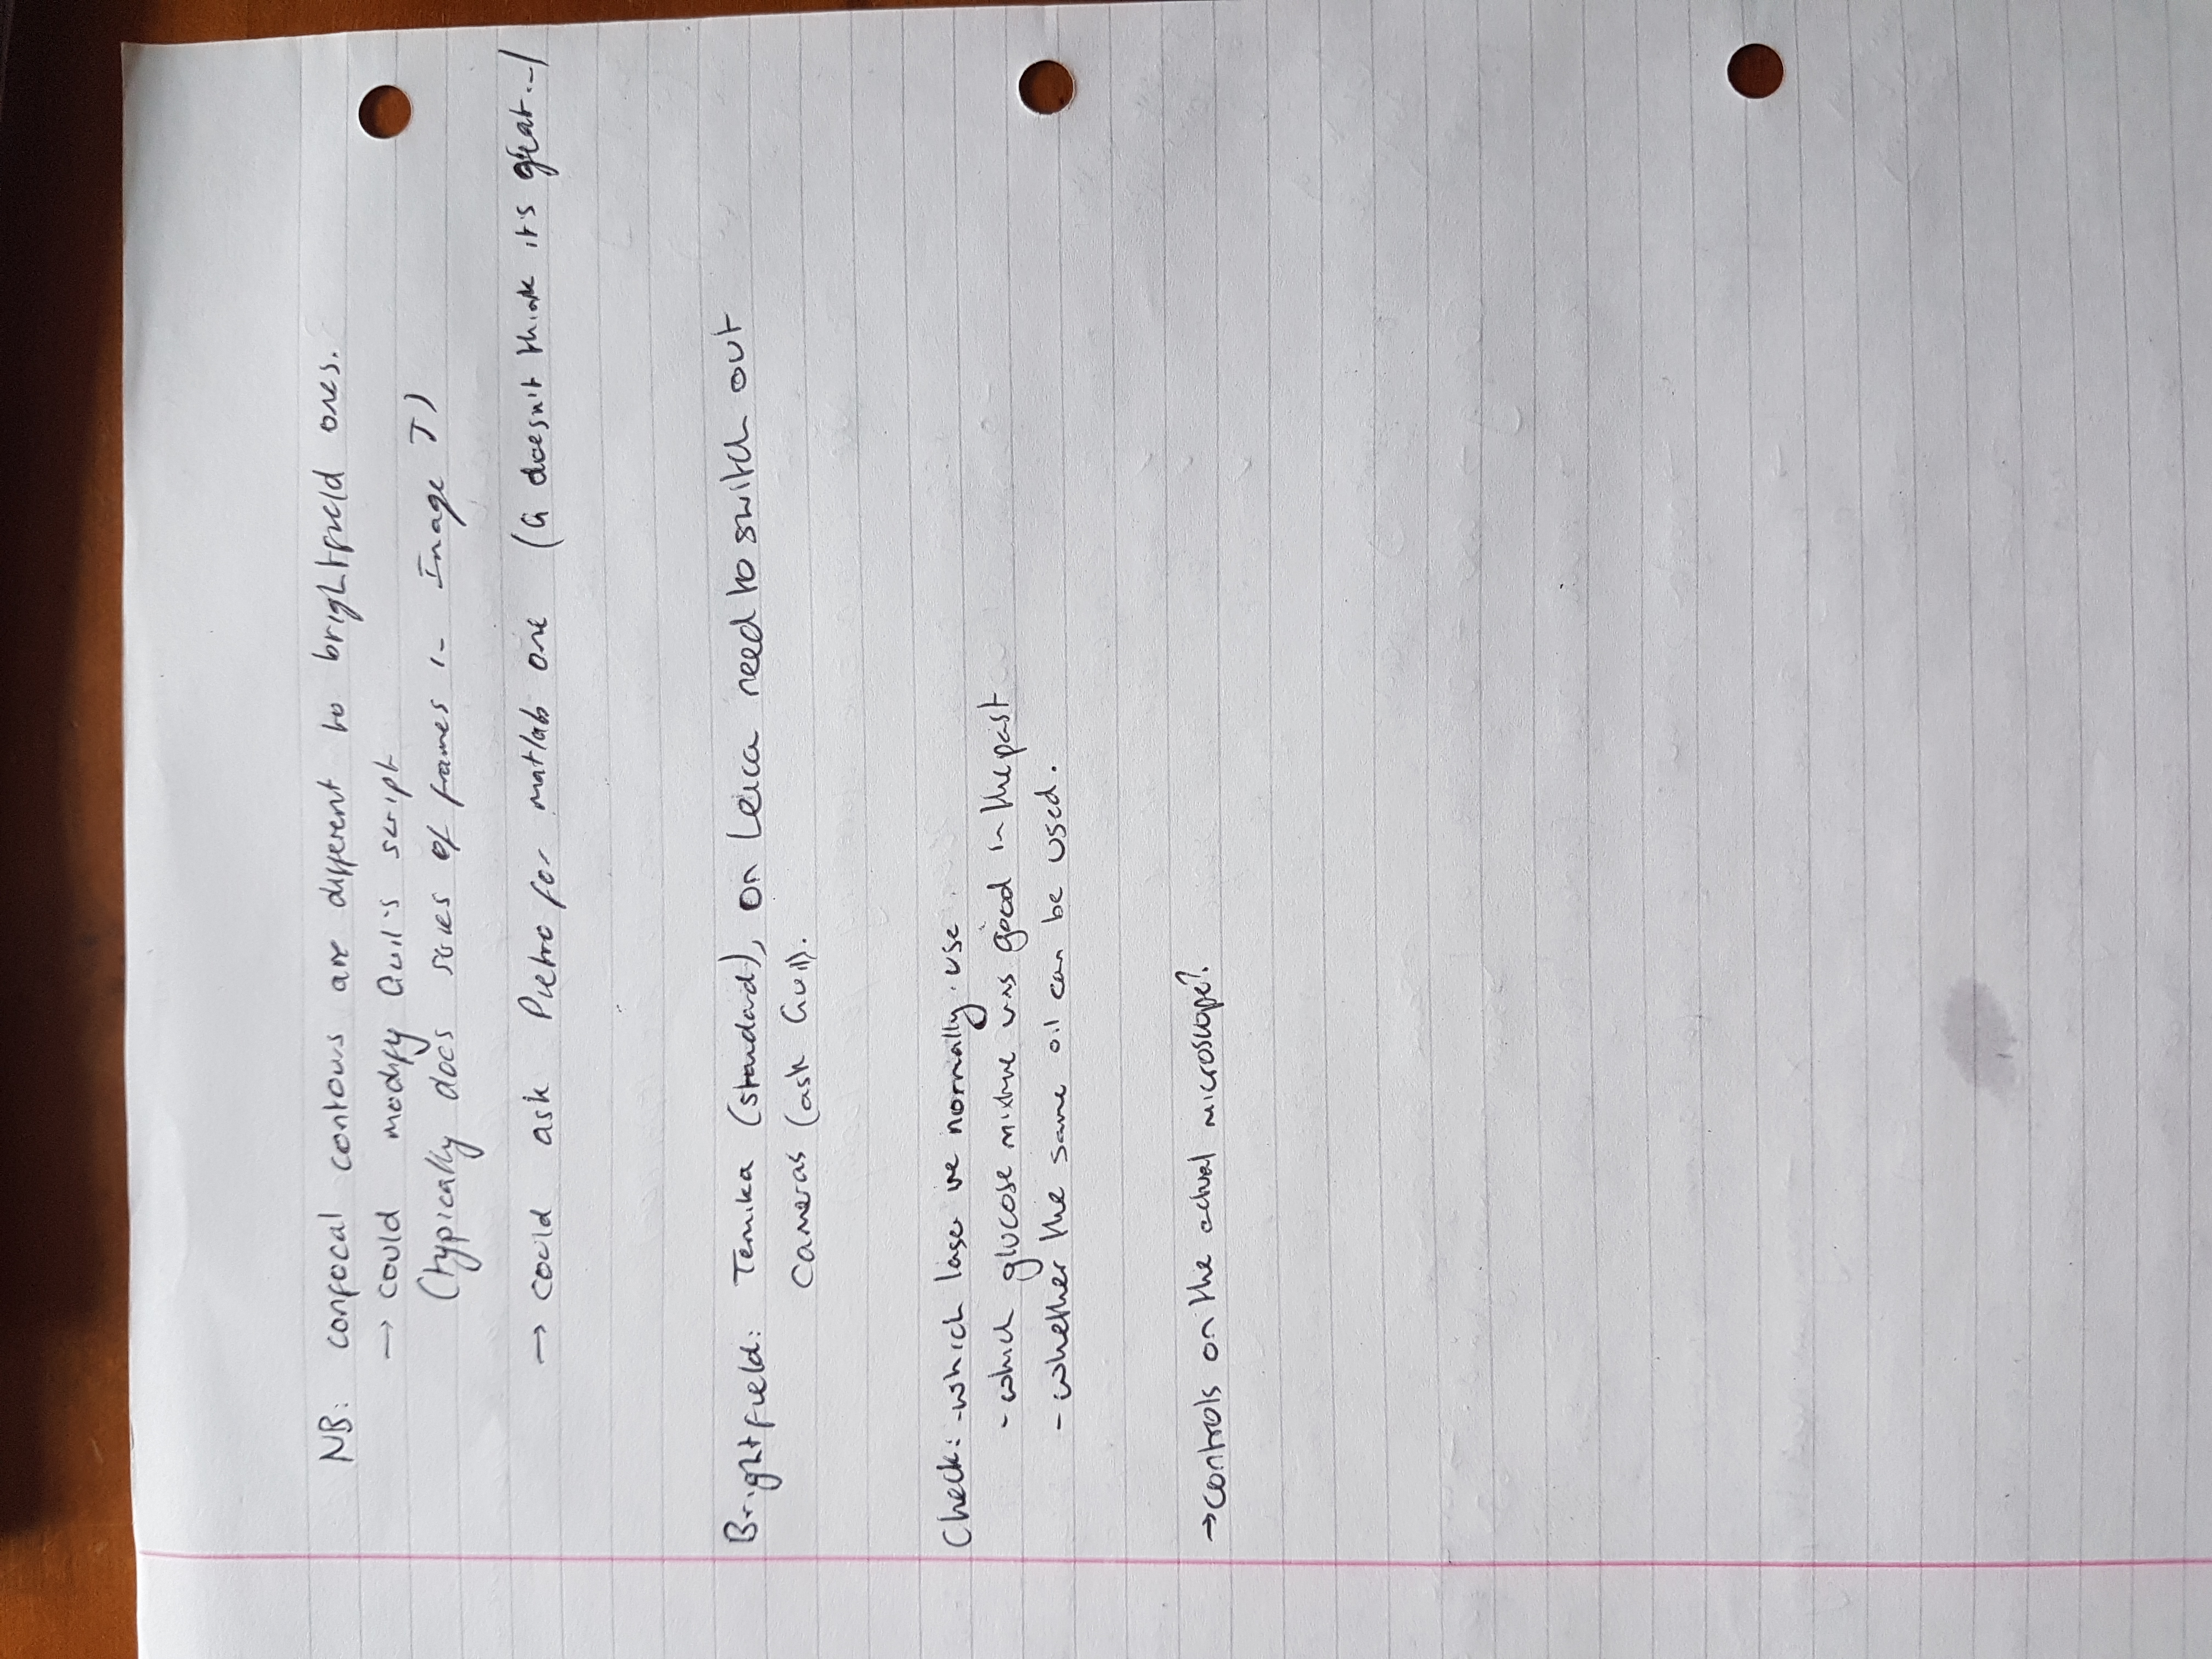 NB: confocal contours are different to brightfield ones.
→ could modify Guil's script
(typically does series of frames in Image J)
→ could ask Pietro for matlab one (G doesn't think it's great...)
Brightfield: Temika (standard), on Leica need to switch out
cameras (ask Guil).
Check: - which laser we normally use
- which glucose mixture was good in the past
- whether the same oil can be used.
→ controls on the actual microscope?